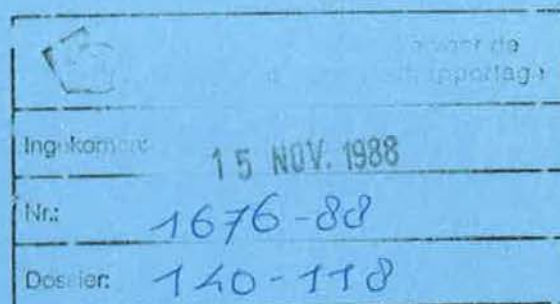 Ingekomen:
15 NOV. 1988
Nr.: 1676-88
Dossier: 140-118